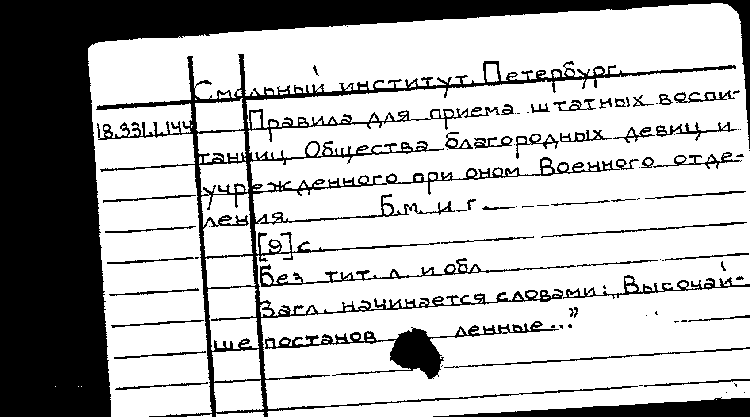 Смольный институт. Петербург.
18.331.1.144 Правила для приема штатных воспи-
танниц Общества благородных девиц и
учрежденного при оном Военного отде-
ления. Б.м. и г.
[9] с.
Без тит. л. и обл.
Загл. начинается словами: „Высочай-
ше постанов ленные..."